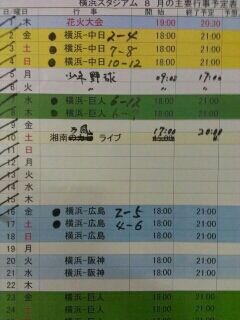 横浜スタジアム 8 月の主要行事予定表
日 曜日 行 事 開 始 終了予定
1 木 花火大会 19:00 20:30
2 金 ● 横浜-中日 2-4 18:00 21:00
3 土 ● 横浜-中日 7-8 18:00 21:00
4 日 ● 横浜-中日 10-12 18:00 21:00
5 月 少年野球 09:00 17:00
6 火 〃 〃 〃
7 水
8 木
9 金
10 土 湘南乃風 ライブ 17:00 20:00
11 日
12 月
13 火
14 水
15 木
16 金 ● 横浜-広島 2-5 18:00 21:00
17 土 ● 横浜-広島 4-6 18:00 21:00
18 日 ● 横浜-広島 18:00 21:00
19 月
20 火 横浜-阪神 18:00 21:00
21 水 横浜-阪神 18:00 21:00
22 木 横浜-阪神 18:00 21:00
23 金 横浜-巨人 18:00 21:00
24 土 横浜-巨人 18:00 21:00